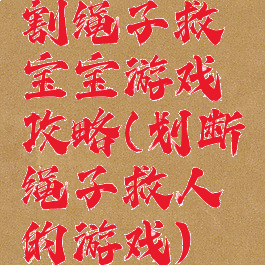 割绳子救
宝宝游戏
攻略(划断
绳子救人
的游戏)